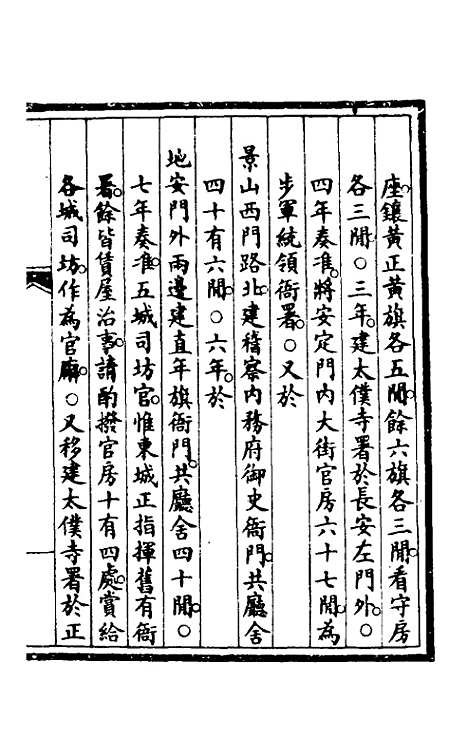 座。鑲黃正黃旗各五閒。餘六旗各三閒。看守房
各三閒。○三年。建太僕寺署於長安左門外。○
四年奏准。將安定門內大街官房六十七閒。為
步軍統領衙署。○又於
景山西門路北。建稽察內務府御史衙門。共廳舍
四十有六閒。○六年。於
地安門外兩邊建直年旗衙門。共廳舍四十閒。○
七年奏准。五城司坊官。惟東城正指揮舊有衙
署。餘皆賃屋治事。請酌撥官房十有四處。賞給
各城司坊。作為官廨。○又移建太僕寺署於正